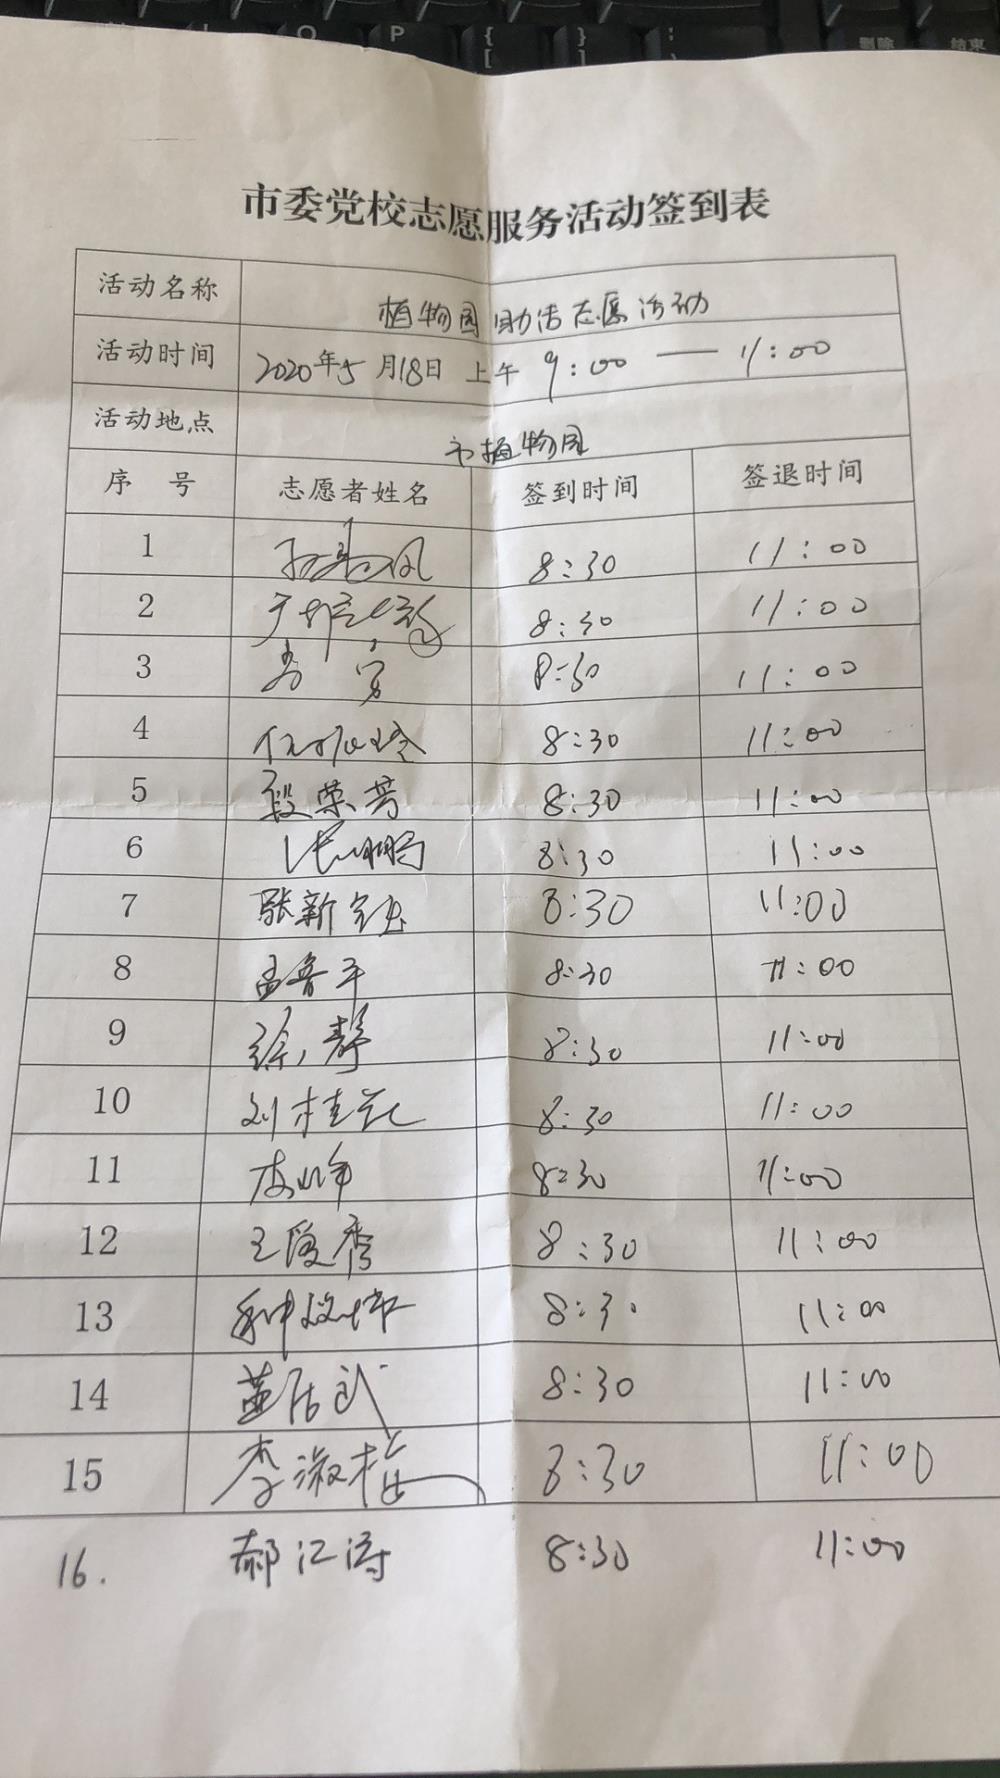 市委党校志愿服务活动签到表
活动名称 植物园助洁志愿活动
活动时间 2020年5月18日 上午 9:00 — 11:00
活动地点 市植物园
序 号 志愿者姓名 签到时间 签退时间
1 8:30 11:00
2 8:30 11:00
3 8:30 11:00
4 8:30 11:00
5 段荣芳 8:30 11:00
6 8:30 11:00
7 张新 8:30 11:00
8 孟鲁平 8:30 11:00
9 徐静 8:30 11:00
10 刘桂花 8:30 11:00
11 8:30 11:00
12 王俊秀 8:30 11:00
13 8:30 11:00
14 董居武 8:30 11:00
15 李淑梅 8:30 11:00
16. 郝江涛 8:30 11:00